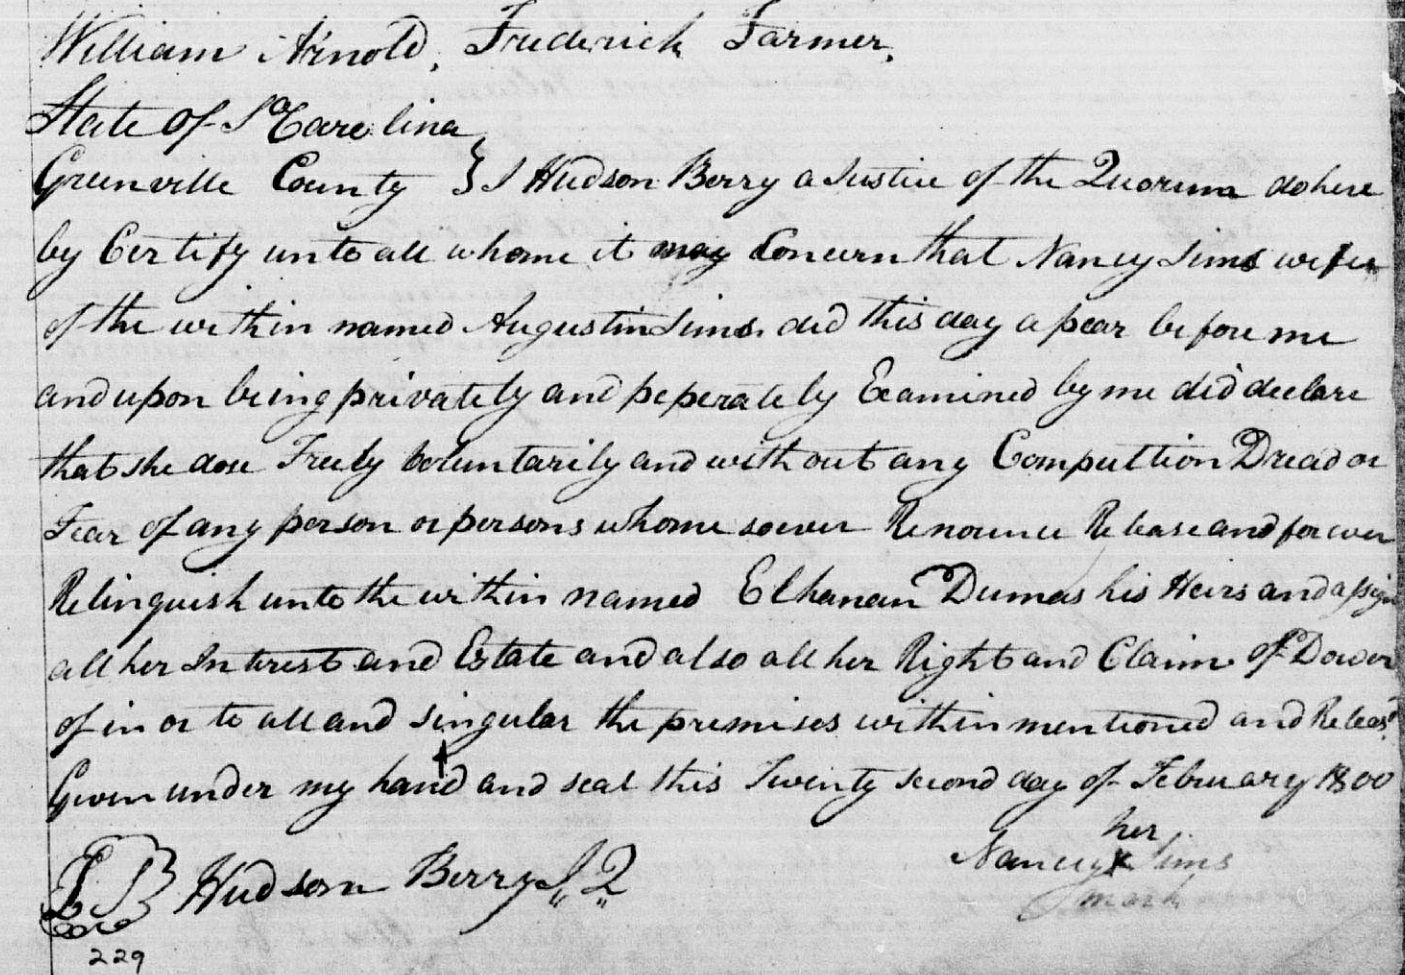 William Arnold, Frederick Farmer,
State of So Carolina
Greenville County } I Hudson Berry a Justice of the Quorum do here
by Certify unto all whome it may Concern that Nancy Sims wife
of the within named Augustin Sims did this day apear before me
and upon being privately and seperately Examined by me did declare
that she dose Freely Voluntarily and without any Compultion Dread or
Fear of any person or persons whome soever Renounce Release and forever
Relinquish unto the within named Elhanan Dumas his Heirs and assigns
all her Interest and Estate and also all her Right and Claim of Dower
of in or to all and singular the premises within mentioned and Releasd
Given under my hand and seal this Twenty second day of February 1800
her
L S Hudson Berry J Q Nancy X Sims
mark
229